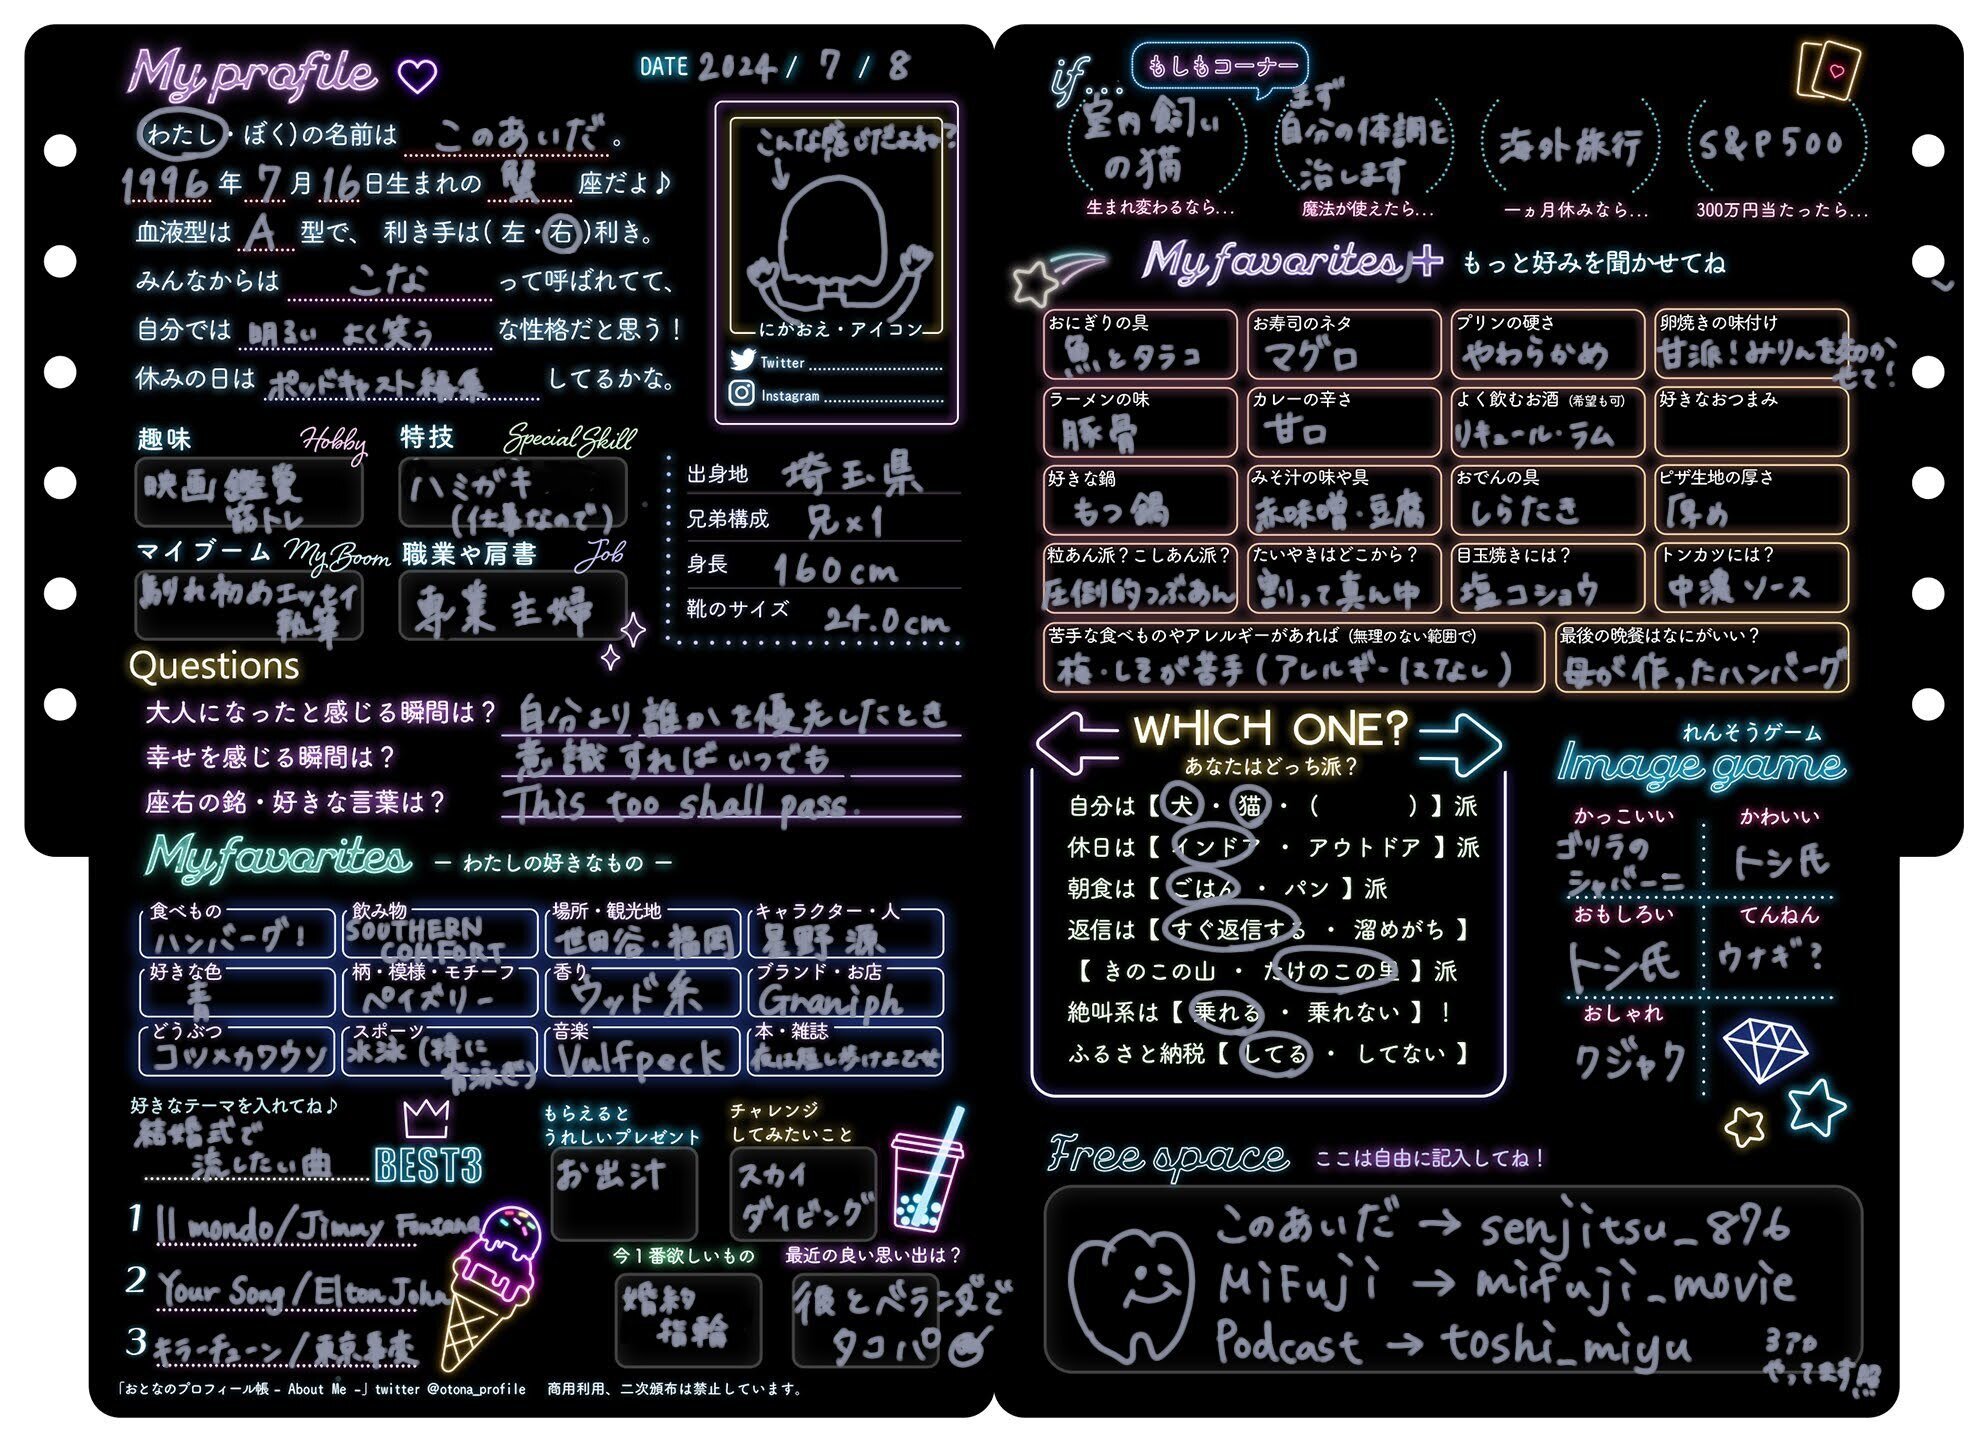 My profile
DATE 2024 / 7 / 8
(わたし・ぼく)の名前は このあいだ 。
1996 年 7 月 16 日生まれの 蟹 座だよ♪
血液型は A 型で、 利き手は( 左・右 )利き。
みんなからは こな って呼ばれてて、
自分では 明るい よく笑う な性格だと思う！
休みの日は ポッドキャスト編集 してるかな。
こんな感じだよね?
↓
にがおえ・アイコン
Twitter
Instagram
趣味 Hobby
映画鑑賞
筋トレ
特技 Special Skill
ハミガキ
(仕事なので)
マイブーム My Boom
馴れ初めエッセイ
執筆
職業や肩書 Job
専業主婦
出身地 埼玉県
兄弟構成 兄×1
身長 160cm
靴のサイズ 24.0cm
Questions
大人になったと感じる瞬間は？ 自分より誰かを優先したとき
幸せを感じる瞬間は？ 意識すればいつでも
座右の銘・好きな言葉は？ This too shall pass.
My favorites － わたしの好きなもの －
食べもの
ハンバーグ!
飲み物
SOUTHERN
COMFORT
場所・観光地
世田谷・福岡
キャラクター・人
星野源
好きな色
青
柄・模様・モチーフ
ペイズリー
香り
ウッド系
ブランド・お店
Graniph
どうぶつ
コツメカワウソ
スポーツ
水泳(特に
背泳ぎ)
音楽
Vulfpeck
本・雑誌
夜は短し歩けよ乙女
好きなテーマを入れてね♪
結婚式で
流したい曲
BEST3
1 Il mondo/Jimmy Fontana
2 Your Song/Elton John
3 キラーチューン/東京事変
もらえると
うれしいプレゼント
お出汁
チャレンジ
してみたいこと
スカイ
ダイビング
今１番欲しいもの
婚約
指輪
最近の良い思い出は？
彼とベランダで
タコパ
「おとなのプロフィール帳 - About Me -」twitter @otona_profile 商用利用、二次頒布は禁止しています。
if... もしもコーナー
室内飼い
の猫
生まれ変わるなら...
まず
自分の体調を
治します
魔法が使えたら...
海外旅行
一ヵ月休みなら...
S&P500
300万円当たったら...
My favorites+ もっと好みを聞かせてね
おにぎりの具
魚とタラコ
お寿司のネタ
マグロ
プリンの硬さ
やわらかめ
卵焼きの味付け
甘派！みりんを効か
せて！
ラーメンの味
豚骨
カレーの辛さ
甘口
よく飲むお酒（希望も可）
リキュール・ラム
好きなおつまみ
好きな鍋
もつ鍋
みそ汁の味や具
赤味噌・豆腐
おでんの具
しらたき
ピザ生地の厚さ
厚め
粒あん派？こしあん派？
圧倒的つぶあん
たいやきはどこから？
割って真ん中
目玉焼きには？
塩コショウ
トンカツには？
中濃ソース
苦手な食べものやアレルギーがあれば（無理のない範囲で）
梅・しそが苦手(アレルギーはなし)
最後の晩餐はなにがいい？
母が作ったハンバーグ
WHICH ONE?
あなたはどっち派？
自分は【 犬 ・ 猫 ・（　　　）】派
休日は【 インドア ・ アウトドア 】派
朝食は【 ごはん ・ パン 】派
返信は【 すぐ返信する ・ 溜めがち 】
【 きのこの山 ・ たけのこの里 】派
絶叫系は【 乗れる ・ 乗れない 】！
ふるさと納税【 してる ・ してない 】
れんそうゲーム
Image game
かっこいい
ゴリラの
シャバーニ
かわいい
トシ氏
おもしろい
トシ氏
てんねん
ウナギ?
おしゃれ
クジャク
Free space ここは自由に記入してね！
このあいだ → senjitsu_876
MiFuji → mifuji_movie
Podcast → toshi_miyu
やってます